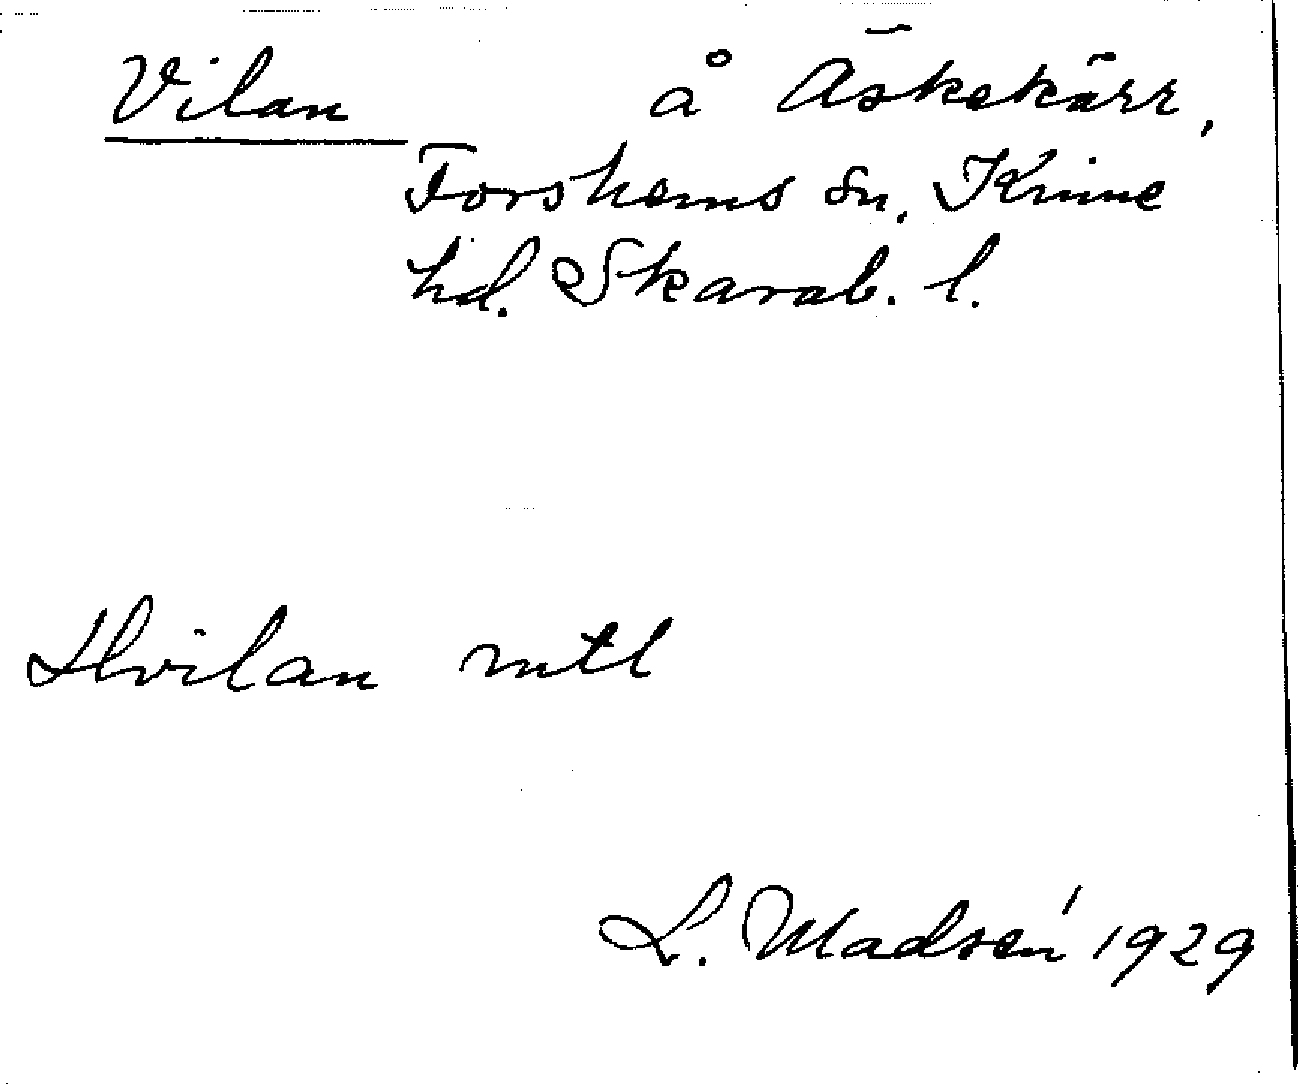 Vilan å Äskekärr,
Forshems sn, Kinne
hd. Skarab. l.
Hvilan mtl
L. Madsén 1929